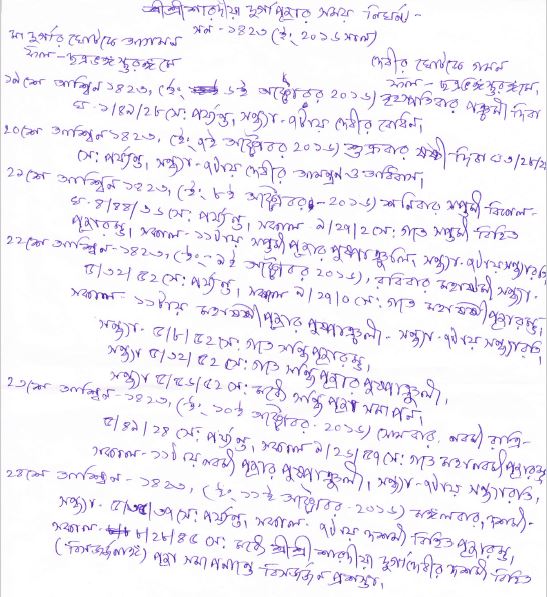 শ্রীশ্রী শারদীয়া দুর্গাপূজার সময় নির্ঘন্ট -
সন - ১৪২৩ (ইং ২০১৬ সাল)
মা দুর্গার ঘোটকে আগমন
ফল - ছত্রভঙ্গস্তুরঙ্গমে
দেবীর ঘোটকে গমন
ফল - ছত্রভঙ্গস্তুরঙ্গমে,
১৯শে আশ্বিন ১৪২৩, (ইং ৬ই অক্টোবর ২০১৬) বৃহস্পতিবার পঞ্চমী দিবা
ঘ ১/৪৯/২৮ সে: পর্য্যন্ত, সন্ধ্যা - ৭টায় দেবীর বোধন,
২০শে আশ্বিন ১৪২৩, (ইং ৭ই অক্টোবর ২০১৬) শুক্রবার ষষ্ঠী - দিবা
সে: পর্য্যন্ত, সন্ধ্যা - ৭টায় দেবীর আমন্ত্রন ও অধিবাস,
২১শে আশ্বিন ১৪২৩, (ইং ৮ই অক্টোবর - ২০১৬) শনিবার সপ্তমী - বিকাল -
ঘ ৪/৪৪/১৬ সে: পর্য্যন্ত, সকাল ৯/২৭/২ সে: গতে সপ্তমী বিহিত
পূজারম্ভ, সকাল - ১১টায় সপ্তমী পূজার পুষ্পাঞ্জলি, সন্ধ্যা - ৭টায় সন্ধ্যারতি,
২২শে আশ্বিন - ১৪২৩, (ইং - ৯ই অক্টোবর ২০১৬), রবিবার মহাষ্টমী সন্ধ্যা -
৫/৩২/৫২ সে: পর্য্যন্ত, সকাল ৯/২৭/০ সে: গতে মহাষ্টমী পূজারম্ভ,
সকাল - ১১টায় মহাষ্টমী পূজার পুষ্পাঞ্জলী - সন্ধ্যা - ৭টায় সন্ধ্যারতি,
সন্ধ্যা - ৫/৮/৫২ সে: গতে সন্ধি পূজারম্ভ,
সন্ধ্যা ৫/৩২/৫২ সে: গতে সন্ধি পূজার পুষ্পাঞ্জলী,
সন্ধ্যা ৫/৫৬/৫২ সে: মধ্যে সন্ধি পূজা সমাপন,
২৩শে আশ্বিন - ১৪২৩, (ইং ১০ই অক্টোবর - ২০১৬) সোমবার, নবমী রাত্রি -
৫/৪৯/২৪ সে: পর্য্যন্ত, সকাল ৯/২৬/৫৭ সে: গতে মহানবমী পূজারম্ভ
সকাল - ১১টায় নবমী পূজার পুষ্পাঞ্জলী, সন্ধ্যা - ৭টায় সন্ধ্যারতি,
২৪শে আশ্বিন - ১৪২৩, (ইং ১১ই অক্টোবর - ২০১৬) মঙ্গলবার, দশমী -
সন্ধ্যা - ৩৭ সে: পর্য্যন্ত, সকাল - ৭টায় দশমী বিহিত পূজারম্ভ,
সকাল - ৮/২৮/৪৫ সে: মধ্যে শ্রীশ্রী শারদীয়া দুর্গাদেবীর দশমী বিহিত
(বিসর্জ্জনাঙ্গ) পূজা সমাপনান্তে বিসর্জ্জন প্রশস্তা,